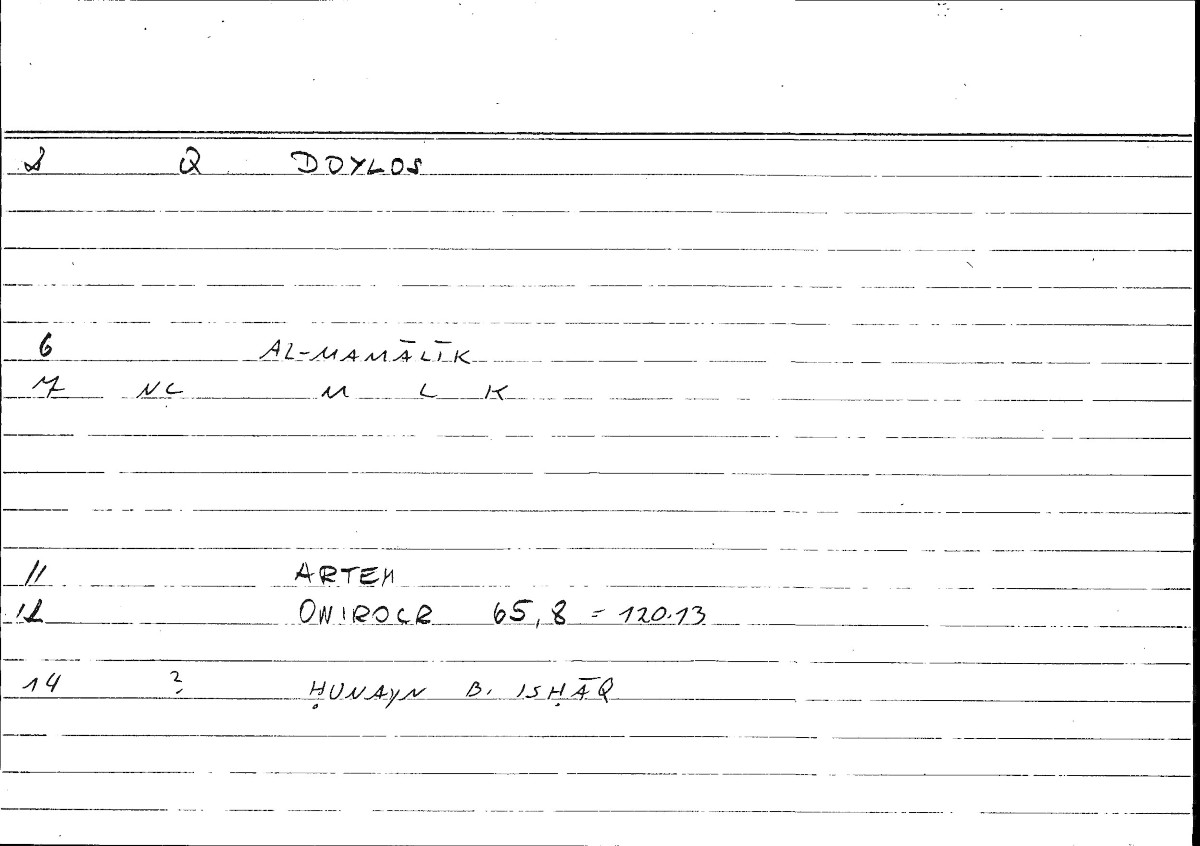 1 Q DOYLOS
6 AL-MAMĀLĪK
7 NC M L K
11 ARTEM
12 ONIROCR 65,8 = 120.13
14 ? ḤUNAYN B. ISḤĀQ